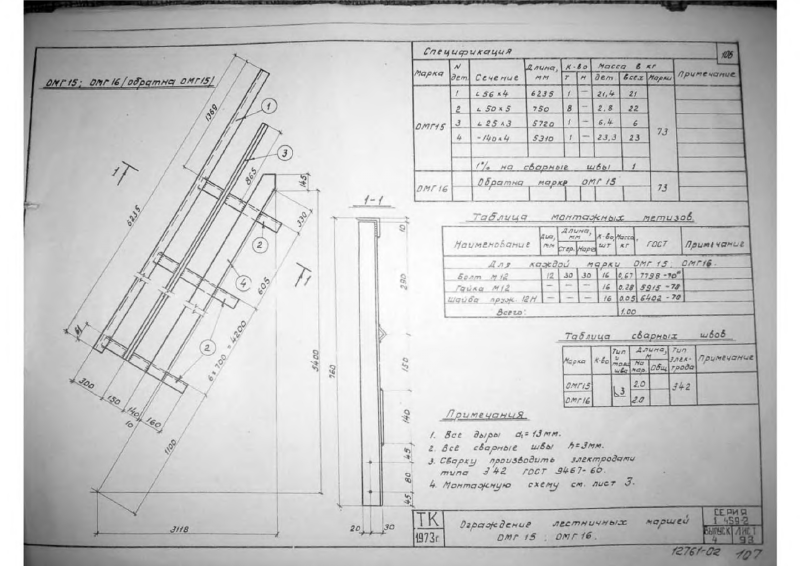 ОМГ 15; ОМГ 16 /обратна ОМГ 15/
1369
6235
1
3
865
145
330
2
4
605
2
6 x 700 = 4200
5400
300
150
140
10
160
1100
3118
1-1
10
290
150
760
140
45
80
45
20
30
Спецификация
Марка N дет. Сечение Длина, мм К-во Масса в кг Примечание
т н дет. всех Марки
ОМГ15 1 ∟56×4 6235 1 — 21,4 21 73
2 ∟50×5 750 8 — 2,8 22
3 ∟25×3 5720 1 — 6,4 6
4 -140×4 5310 1 — 23,3 23
1% на сварные швы 1
ОМГ16 Обратна марке ОМГ 15 73
Таблица монтажных метизов.
Наименование Диа, мм Длина, мм К-во шт Масса, кг ГОСТ Примечание
Стер. Наре
Для каждой марки ОМГ 15; ОМГ16.
Болт М12 12 30 30 16 0,67 7798-70*
Гайка М12 — — — 16 0.28 5915-70
Шайба пруж. 12Н — — — 16 0.05 6402-70
Всего: 1.00
Таблица сварных швов
Марка К-во Тип и толщ шва Длина, м Тип элек- трода Примечание
На мар. Общ.
ОМГ15 3 2.0 Э42
ОМГ16 2.0
Примечания
1. Все дыры d₁=13мм.
2. Все сварные швы h=3мм.
3. Сварку производить электродами
типа Э42 ГОСТ 9467-60.
4. Монтажную схему см. лист 3.
ТК
1973г.
Ограждение лестничных маршей
ОМГ 15. ОМГ 16.
СЕРИЯ
1.459-2
ВЫПУСК ЛИСТ
4 93
12761-02 107